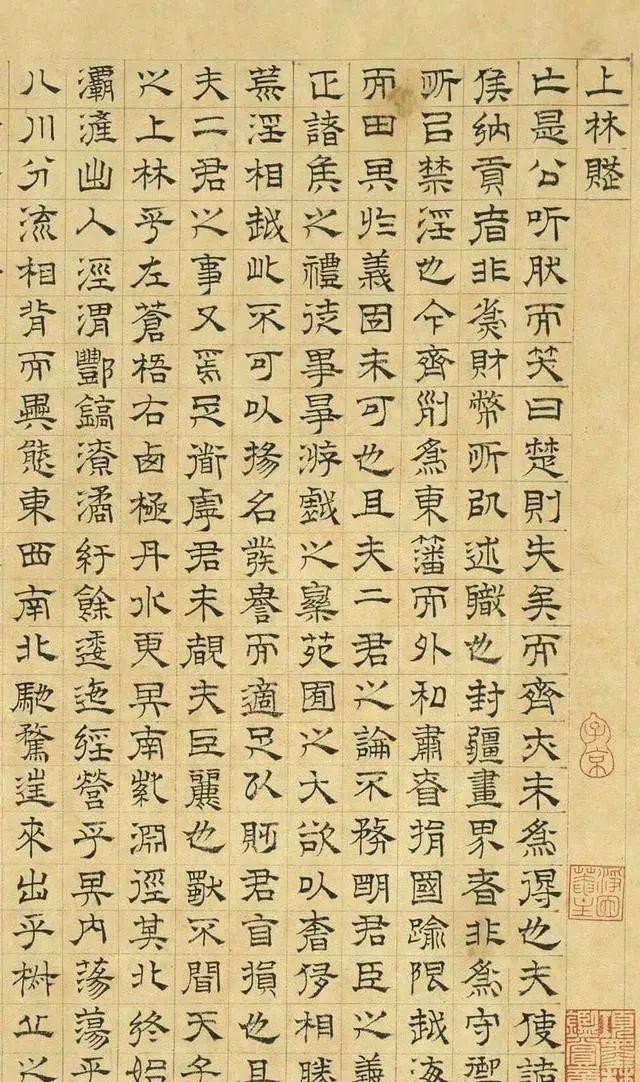 上林賦
亡是公听肰而笑曰楚則失矣而齊亦未為得也夫使諸
侯納貢者非為財幣所以述職也封疆畫界者非為守御
所㠯禁淫也今齊列為東藩而外私肅眘捐國踰限越海
而田其於義固未可也且夫二君之論不務明君臣之義
正諸侯之禮徒事爭游戲之樂苑囿之大欲以奢侈相勝
荒淫相越此不可以揚名發譽而適足以貶君自損也且
夫二君之事又焉足道虖君未覩夫巨麗也獨不聞天子
之上林乎左蒼梧右西極丹水更其南紫淵徑其北終始
灞滻出入涇渭酆鎬潦潏紆餘逶迆經營乎其內蕩蕩乎
八川分流相背而異態東西南北馳騖往來出乎椒丘之
子京